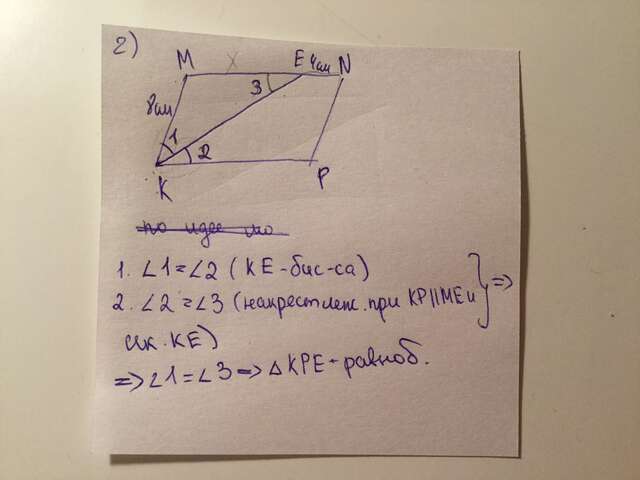 2)
M x E 4см N
8см 3
1 2
K P
по идее мо
1. ∠1=∠2 (KE-бис-са)
2. ∠2=∠3 (накрест леж. при KP||ME и
сек. KE) } =>
=> ∠1=∠3 => △KPE - равноб.